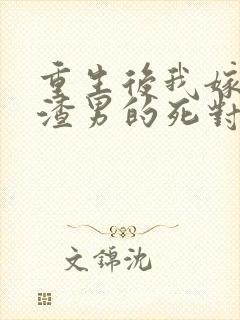 重生後我嫁
渣男的死對
文錦沈